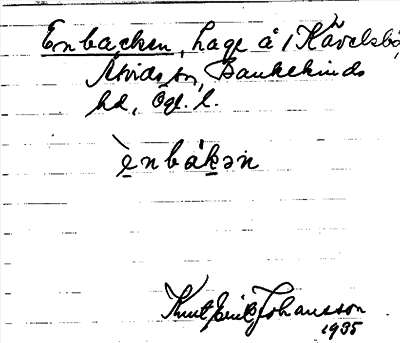 Enbacken, hage å 1 Kävelsbo,
Åtvids sn, Bankekinds
hd, Ögl. l.
ènbákən
Knut Erik Johansson
1935